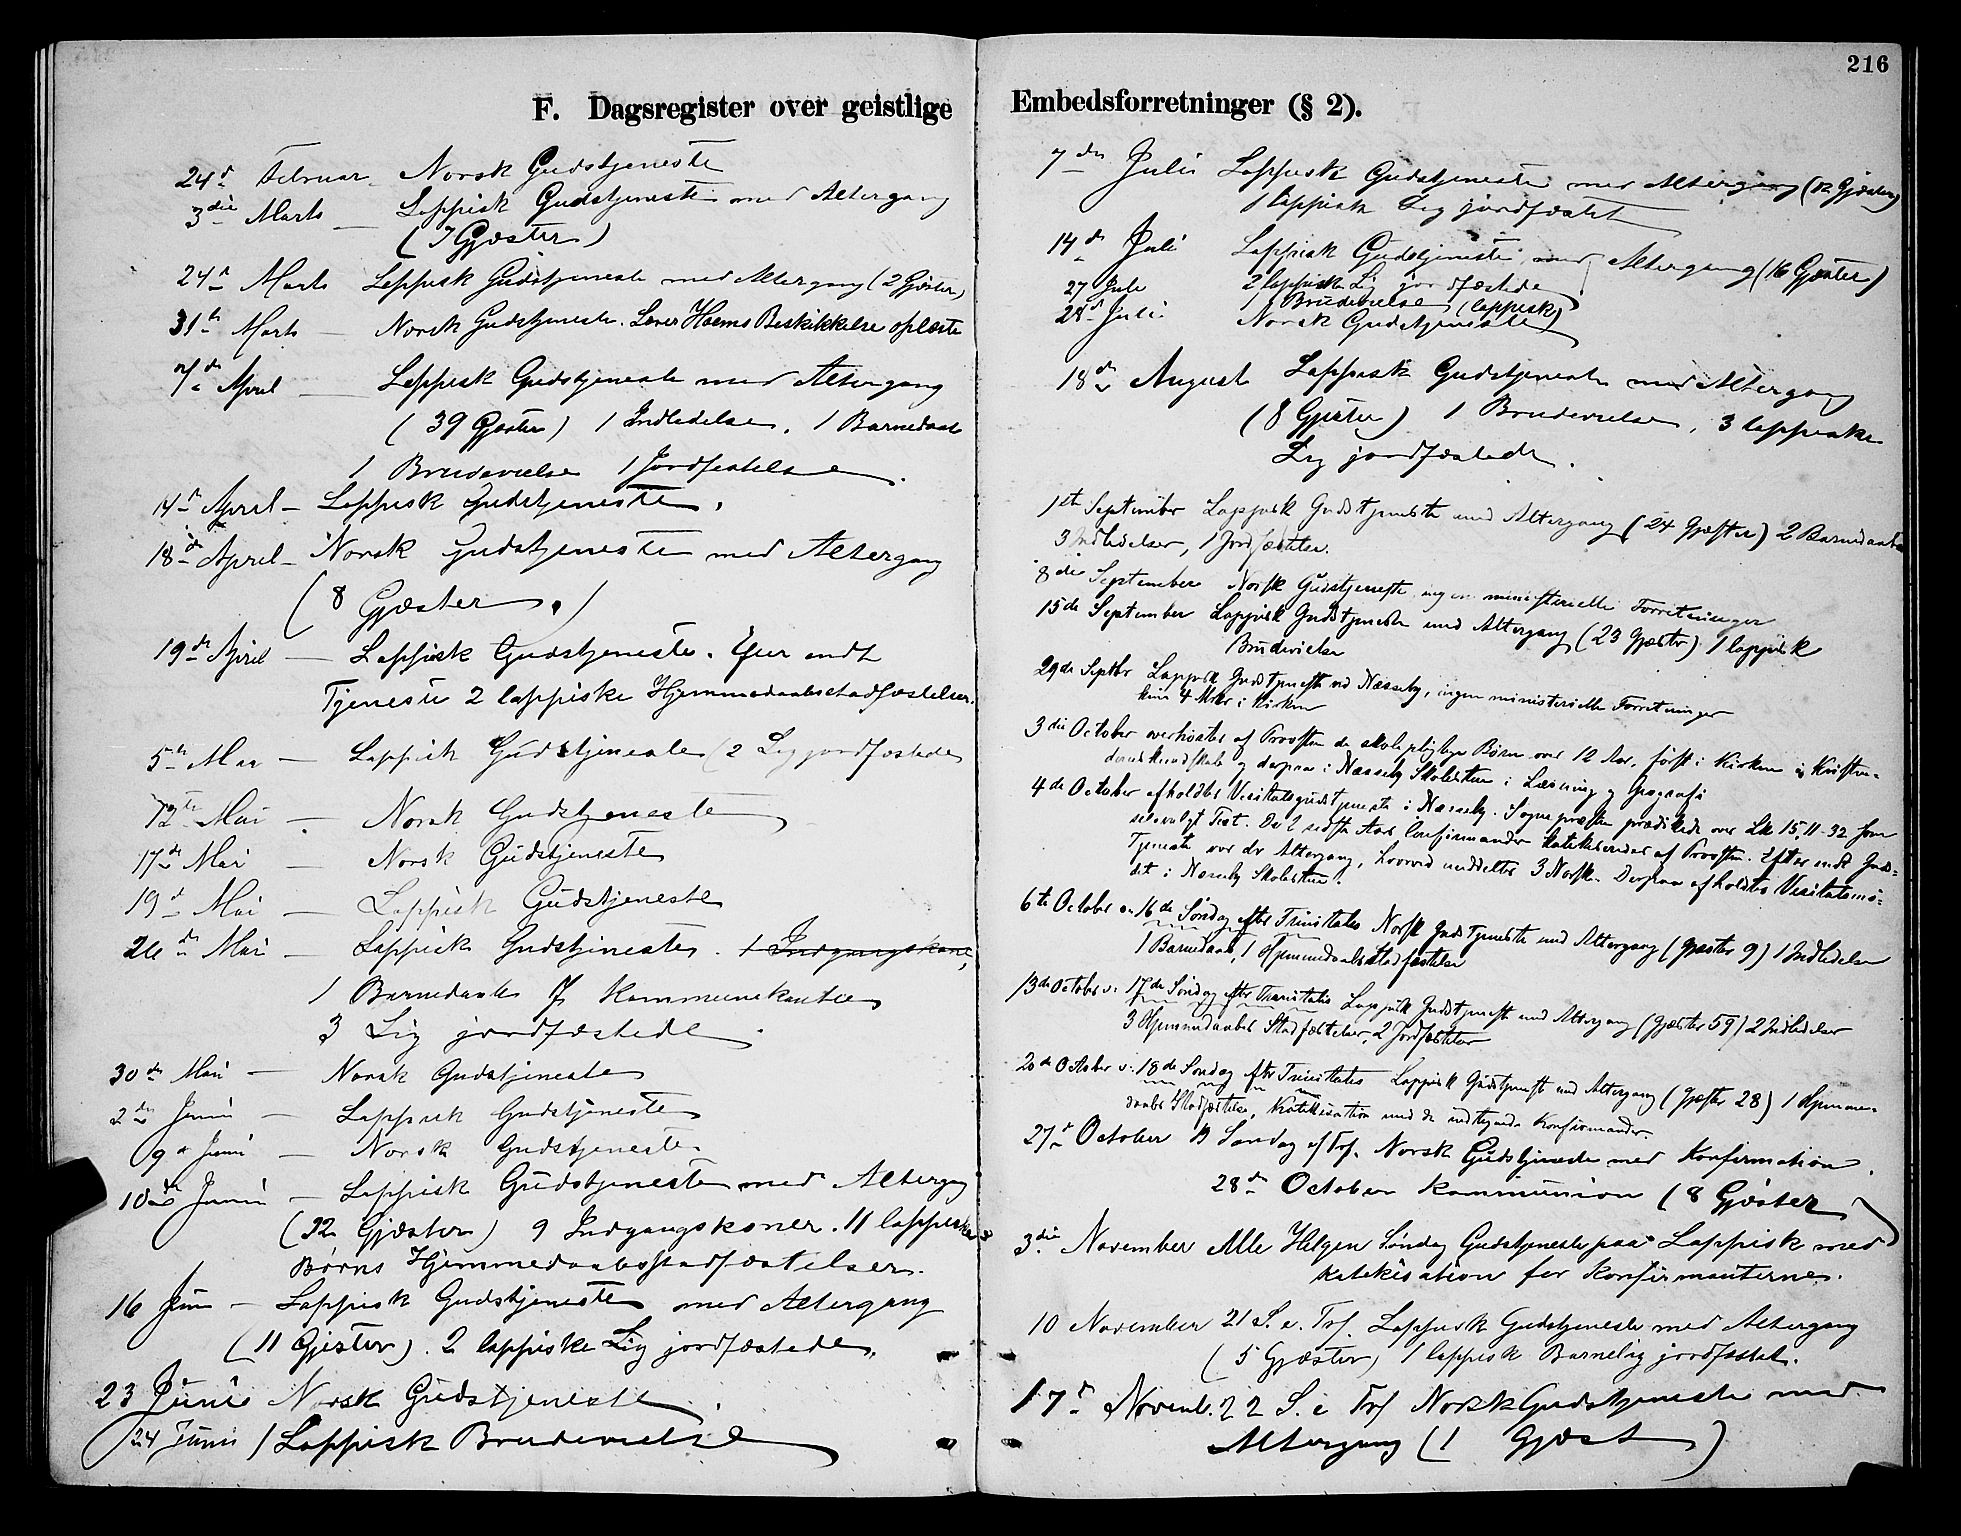 216
F. Dagsregister over geistlige Embedsforretninger (§ 2).
24d Februar - Norsk Gudstjeneste
3die Marts - Lappisk Gudstjeneste med Altergang
(7 Gjæster)
24d Marts Lappisk Gudstjeneste med Altergang (2 Gjæster)
31te Marts - Norsk Gudstjeneste. Lærer Beskikkelse oplæste
7de April - Lappisk Gudstjeneste med Altergang
(39 Gjæster) 1 Indledelse, 1 Barnedaab
1 Brudevielse 1 Jordfestelse.
14d April - Lappisk Gudstjeneste.
18de April - Norsk Gudstjeneste med Altergang
(8 Gjæster.)
19de April - Lappisk Gudstjeneste. Efter endt
Tjeneste 2 lappiske Hjemmedaabsstadfæstelser.
5te Mai - Lappisk Gudstjeneste (2 Lig jordfæstede
12te Mai - Norsk Gudstjeneste
17de Mai - Norsk Gudstjeneste
19d Mai - Lappisk Gudstjeneste
26de Mai - Lappisk Gudstjeneste. 1 Indgangskone,
1 Barnedaab Kommunekantee
3 Lig jordfæstede.
30de Mai - Norsk Gudstjeneste
2den Juni - Lappisk Gudstjeneste
9d Juni - Norsk Gudstjeneste
10de Juni - Lappisk Gudstjeneste med Altergang
(32 Gjæster) 9 Indgangskoner. 11 lappiske
Børns Hjemmedaabsstadfæstelser.
16 Juni - Lappisk Gudstjeneste med Altergang
(11 Gjæster). 2 lappiske Lig jordfæstede.
23 Juni Norsk Gudstjeneste.
24 Juni 1 Lappisk Brudevielse
7de Juli Lappisk Gudstjeneste med Altergang (12 Gjæster)
1 lappisk Lig jordfæstet
14de Juli Lappisk Gudstjeneste med Altergang (16 Gjæster)
2 lappiske Lig jordfæstede
27 Juli 1 Brudevielse (lappisk)
28d Juli Norsk Gudstjeneste
18de August Lappisk Gudstjeneste med Altergang
(8 Gjæster) 1 Brudevielse, 3 lappiske
Lig jordfæstede.
1ste September Lappisk Gudstjeneste med Altergang (24 Gjæster) 2 Barnedaab
3 Indledelser, 1 Jordfæstelse.
8die September Norsk Gudstjeneste, ingen ministerielle Forretninger
15de September Lappisk Gudstjeneste med Altergang (23 Gjæster) 1 lappisk
Brudevielse
29de Septbr Lappisk Gudstjeneste ved Næsseby, ingen ministerielle Forretninger
kun 4 Mskr i Kirken
3die October overhørtes af Provsten de skolepligtige Børn over 12 Aar, først i Kirken i Kristen-
domskundskab og derpaa i Næsseby Skolestue i Læsning og Geografi
4de October afholdtes Visitatsgudstjeneste i Næsseby. Sognepræsten prædikede over Lk 15, 11-32 som
selvvalgt Text. De 2 sidste Aars Confirmander katekiseredes af Provsten. Efter endt Guds-
Tjeneste var der Altergang, hvorved meddeltes 3 Norske. Derpaa afholdtes Visitatsmø-
det i Næsseby Skolestue.
6te October 16de Søndag efter Trinitatis Norsk Gudstjeneste med Altergang (Gjæster 9) 1 Indledelse
1 Barnedaab, 1 Hjemmedaabs Stadfæstelse
13de October 17de Søndag efter Trinitatis Lappisk Gudstjeneste med Altergang (Gjæster 59) 2 Indledelser
3 Hjemmedaabs Stadfæstelser, 2 Jordfæstelser
20de October 18de Søndag efter Trinitatis Lappisk Gudstjeneste med Altergang (Gjæster 28) 1 Hjemme-
daabs Stadfæstelse, Katekisation med de Konfirmander.
27d October 19 Søndag ef Trf. Norsk Gudstjeneste med Konfirmation.
28de October Kommunion (8 Gjæster)
3die November Alle Helgen Søndag Gudstjeneste paa Lappisk med
katekisation for konfirmanterne.
10 November 21 S. e. Trf. Lappisk Gudstjeneste med Altergang
(5 Gjæster) 1 lappisk Barnelig jordfæstet.
17d Novemb. 22 S. e Trf Norsk Gudstjeneste med
Altergang (1 Gjæst)